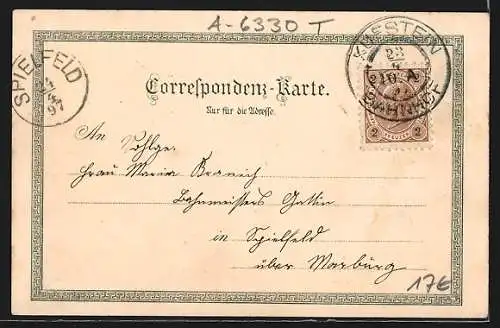 A-6330 T
KUFSTEIN
23
4
10 A
97
BAHNHOF
SPIELFELD
24
4
97
Correspondenz-Karte.
Nur für die Adresse.
2 2
An
Frau Maria
Bahnmeisters Gattin
in Spielfeld
über Marburg
17€